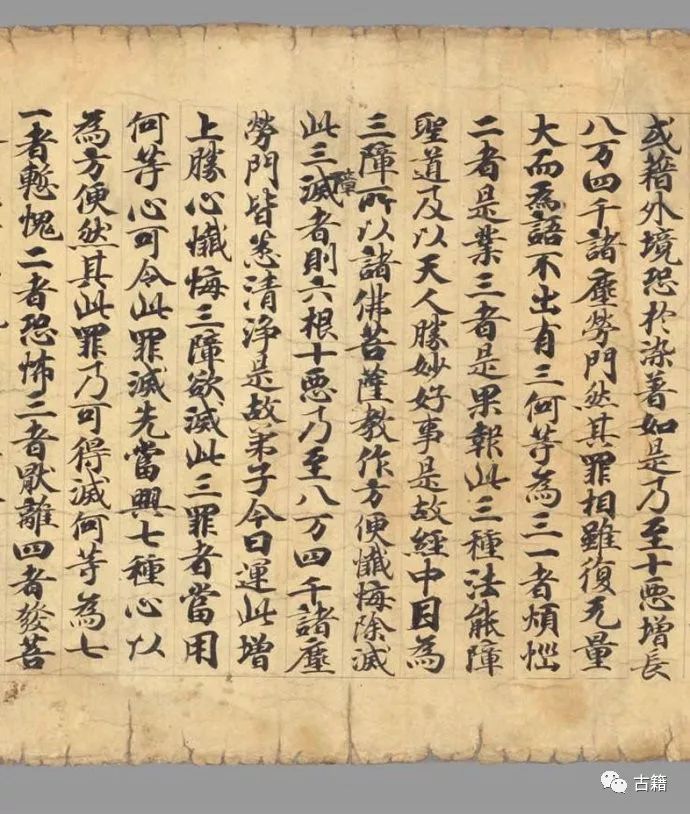 或藉外境恐於染著如是乃至十悪增長
八万四千諸塵勞門然其罪相雖復无量
大而為語不出有三何等為三一者煩惱
二者是業三者是果報此三種法能障
聖道及以天人勝妙好事是故經中目為
三障所以諸佛菩薩教作方便懺悔除滅
此三障滅者則六根十悪乃至八万四千諸塵
勞門皆悉清淨是故弟子今日運此增
上勝心懺悔三障欲滅此三罪者當用
何等心可令此罪滅先當興七種心以
為方便然其此罪乃可得滅何等為七
一者慙愧二者恐怖三者猒離四者發菩
古籍